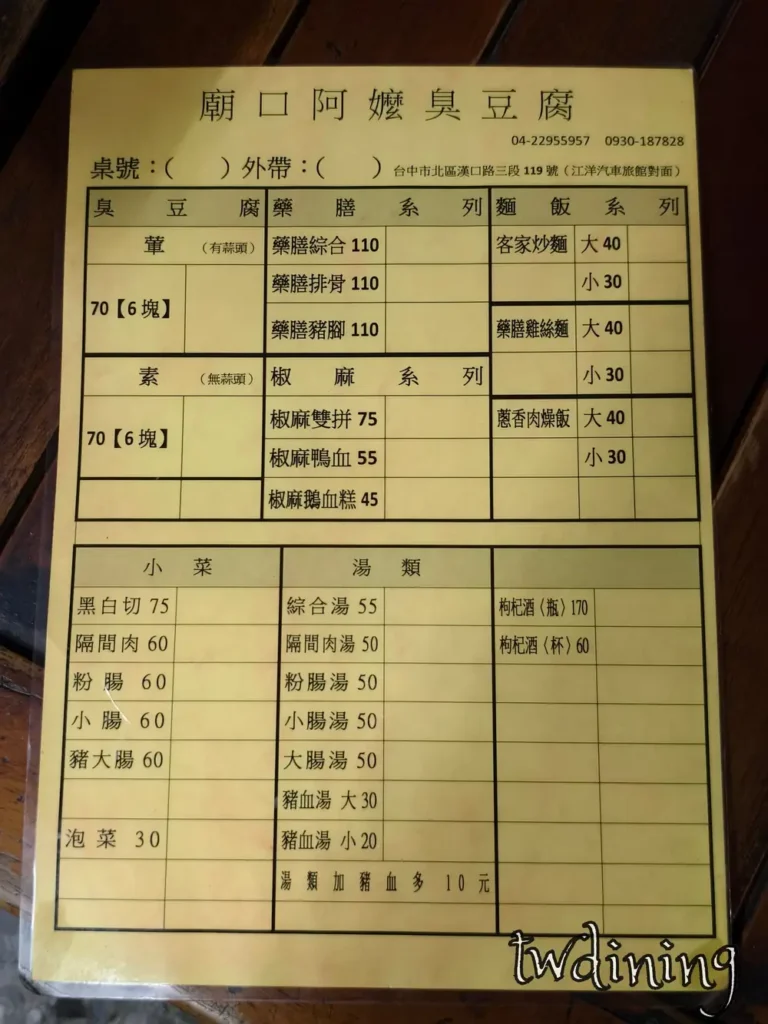 廟口阿嬤臭豆腐
04-22955957 0930-187828
桌號：( ) 外帶：( ) 台中市北區漢口路三段 119 號（江洋汽車旅館對面）
臭豆腐 藥膳系列 麵飯系列
葷 （有蒜頭） 藥膳綜合 110 客家炒麵 大 40
70【6 塊】 藥膳排骨 110 小 30
藥膳豬腳 110 藥膳雞絲麵 大 40
素 （無蒜頭） 椒麻系列 小 30
70【6 塊】 椒麻雙拼 75 蔥香肉燥飯 大 40
椒麻鴨血 55 小 30
椒麻鵝血糕 45
小菜 湯類
黑白切 75 綜合湯 55 枸杞酒〈瓶〉170
隔間肉 60 隔間肉湯 50 枸杞酒〈杯〉60
粉腸 60 粉腸湯 50
小腸 60 小腸湯 50
豬大腸 60 大腸湯 50
豬血湯 大 30
泡菜 30 豬血湯 小 20
湯類加豬血多 10 元
twdining